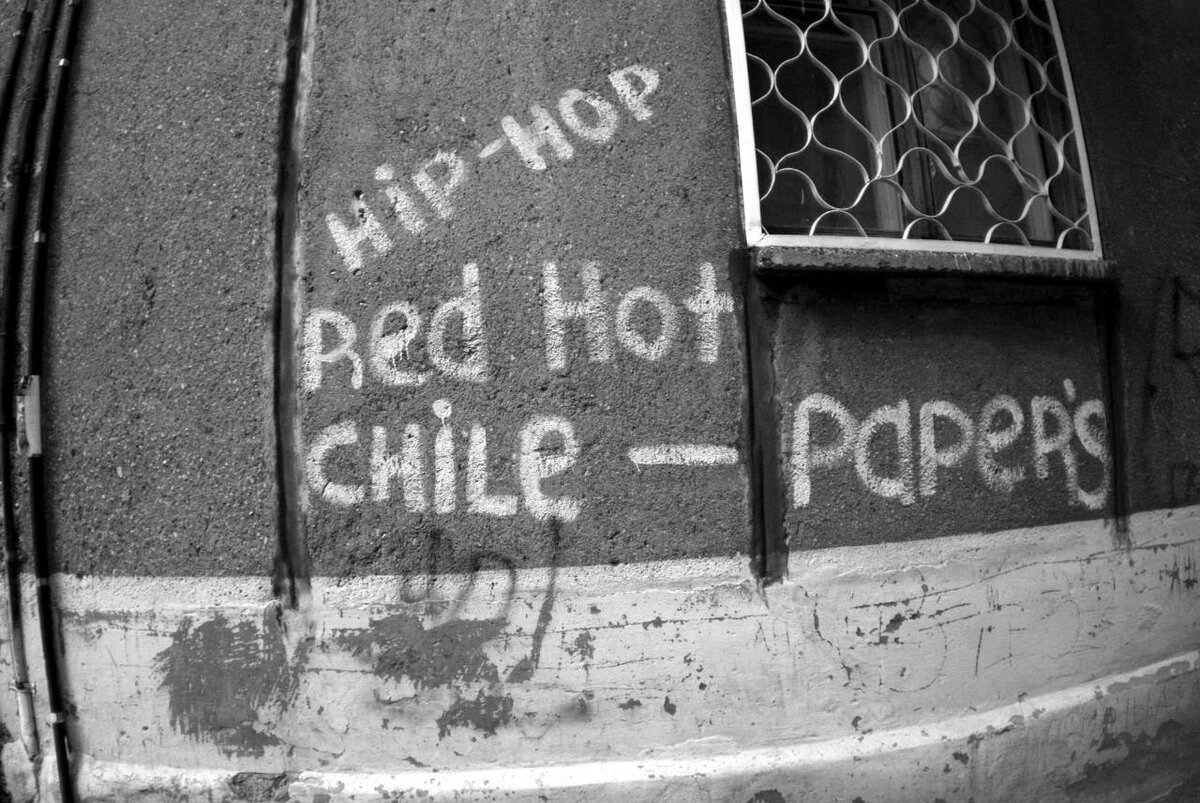 HiP-HOP
Red Hot
CHiLe — PaPeR's